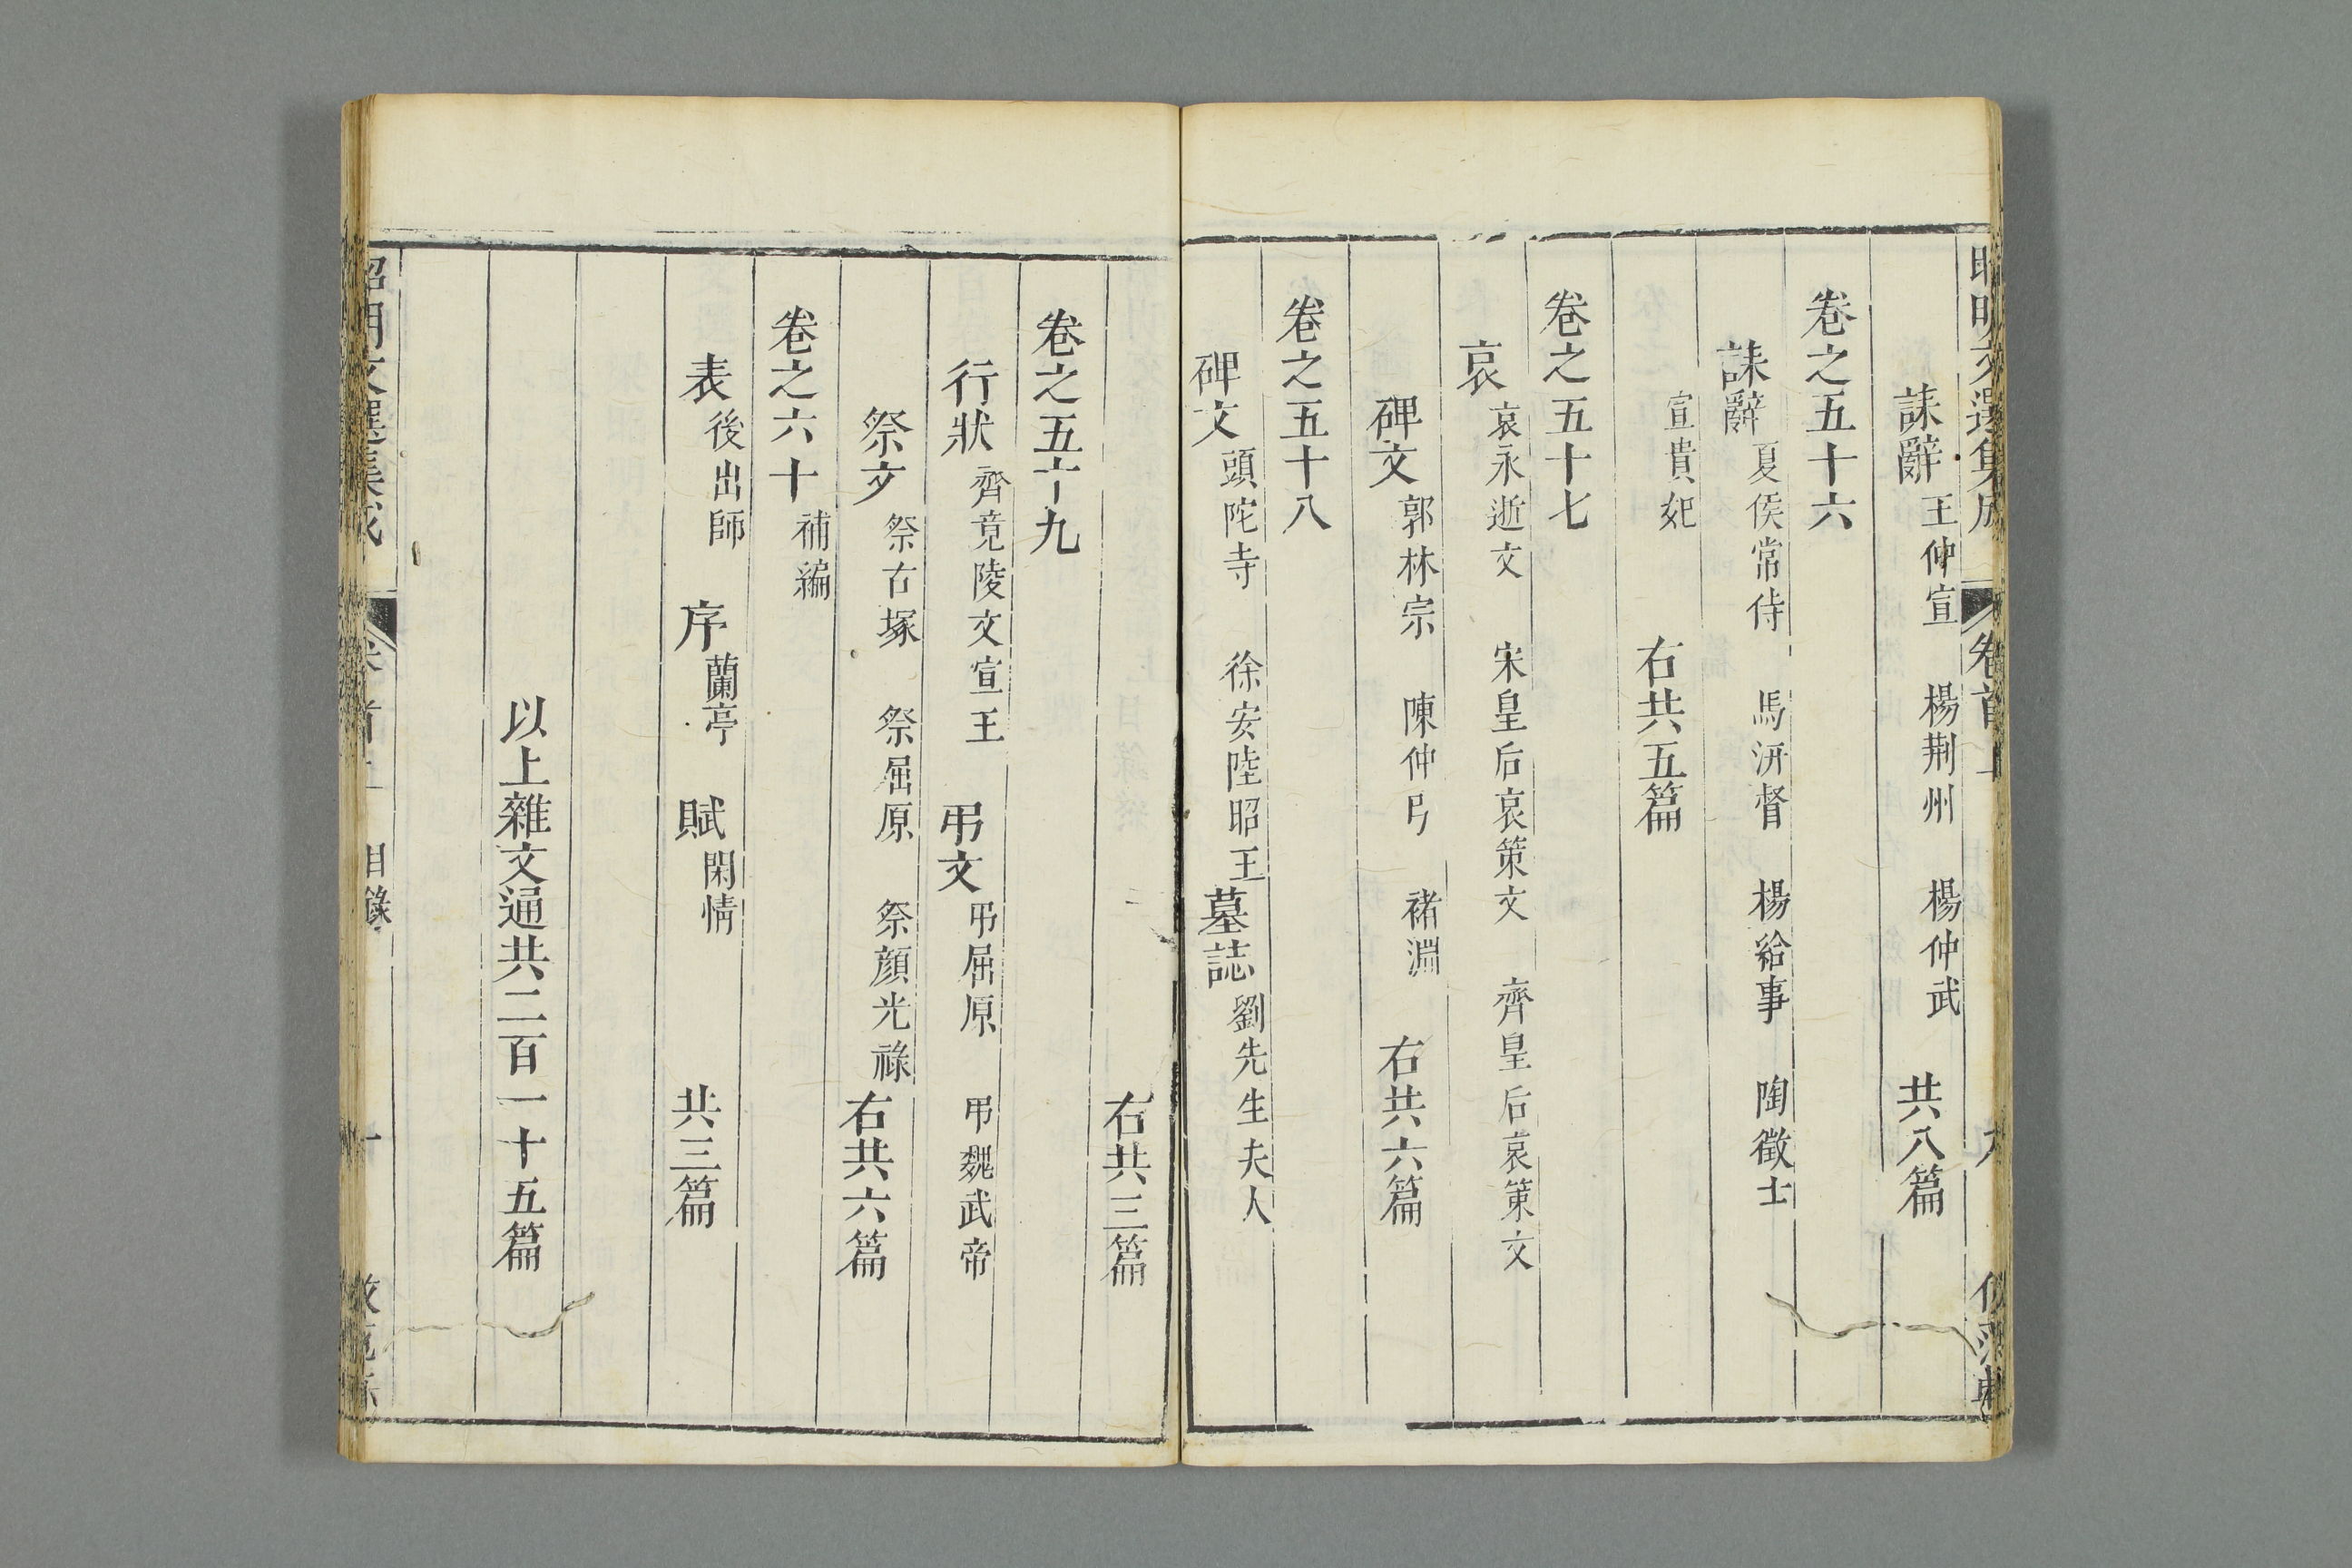 昭明文選集成 卷首上 九
誄辭 王仲宣 楊荆州 楊仲武 共八篇
卷之五十六
誄辭 夏侯常侍 馬汧督 楊給事 陶徵士
宣貴妃
右共五篇
卷之五十七
哀 哀永逝文 宋皇后哀策文 齊皇后哀策文
碑文 郭林宗 陳仲弓 褚淵 右共六篇
卷之五十八
碑文 頭陀寺 徐安陸昭王 墓誌 劉先生夫人
右共三篇
卷之五十九
行狀 齊竟陵文宣王 弔文 弔屈原 弔魏武帝
祭文 祭古塚 祭屈原 祭顔光祿 右共六篇
卷之六十 補編
表 後出師 序 蘭亭 賦 閑情 共三篇
以上雜文通共二百一十五篇
昭明文選集成 卷首上 目錄 十